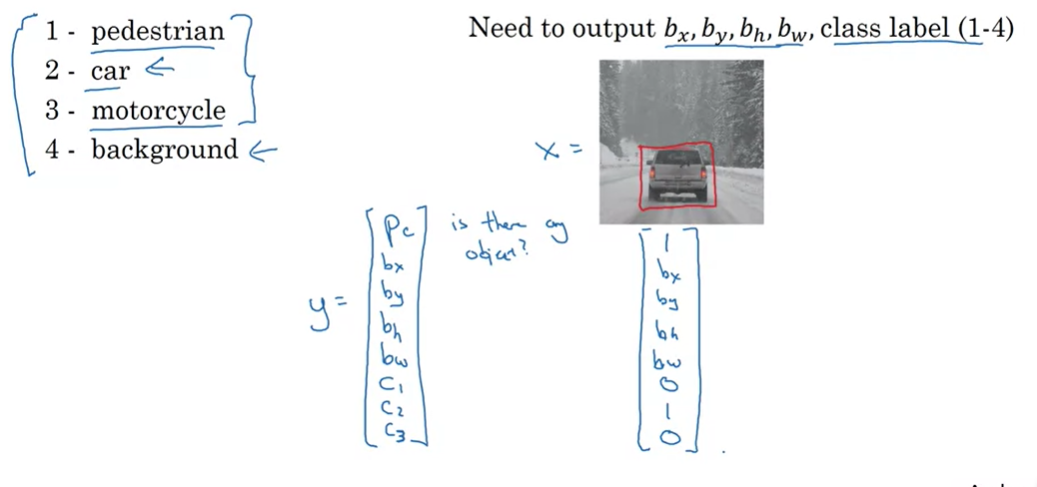 1 - pedestrian
2 - car ←
3 - motorcycle
4 - background ←
Need to output bx, by, bh, bw, class label (1-4)
x =
y =
Pc
bx
by
bh
bw
C1
C2
C3
is there any
object?
1
bx
by
bh
bw
0
1
0